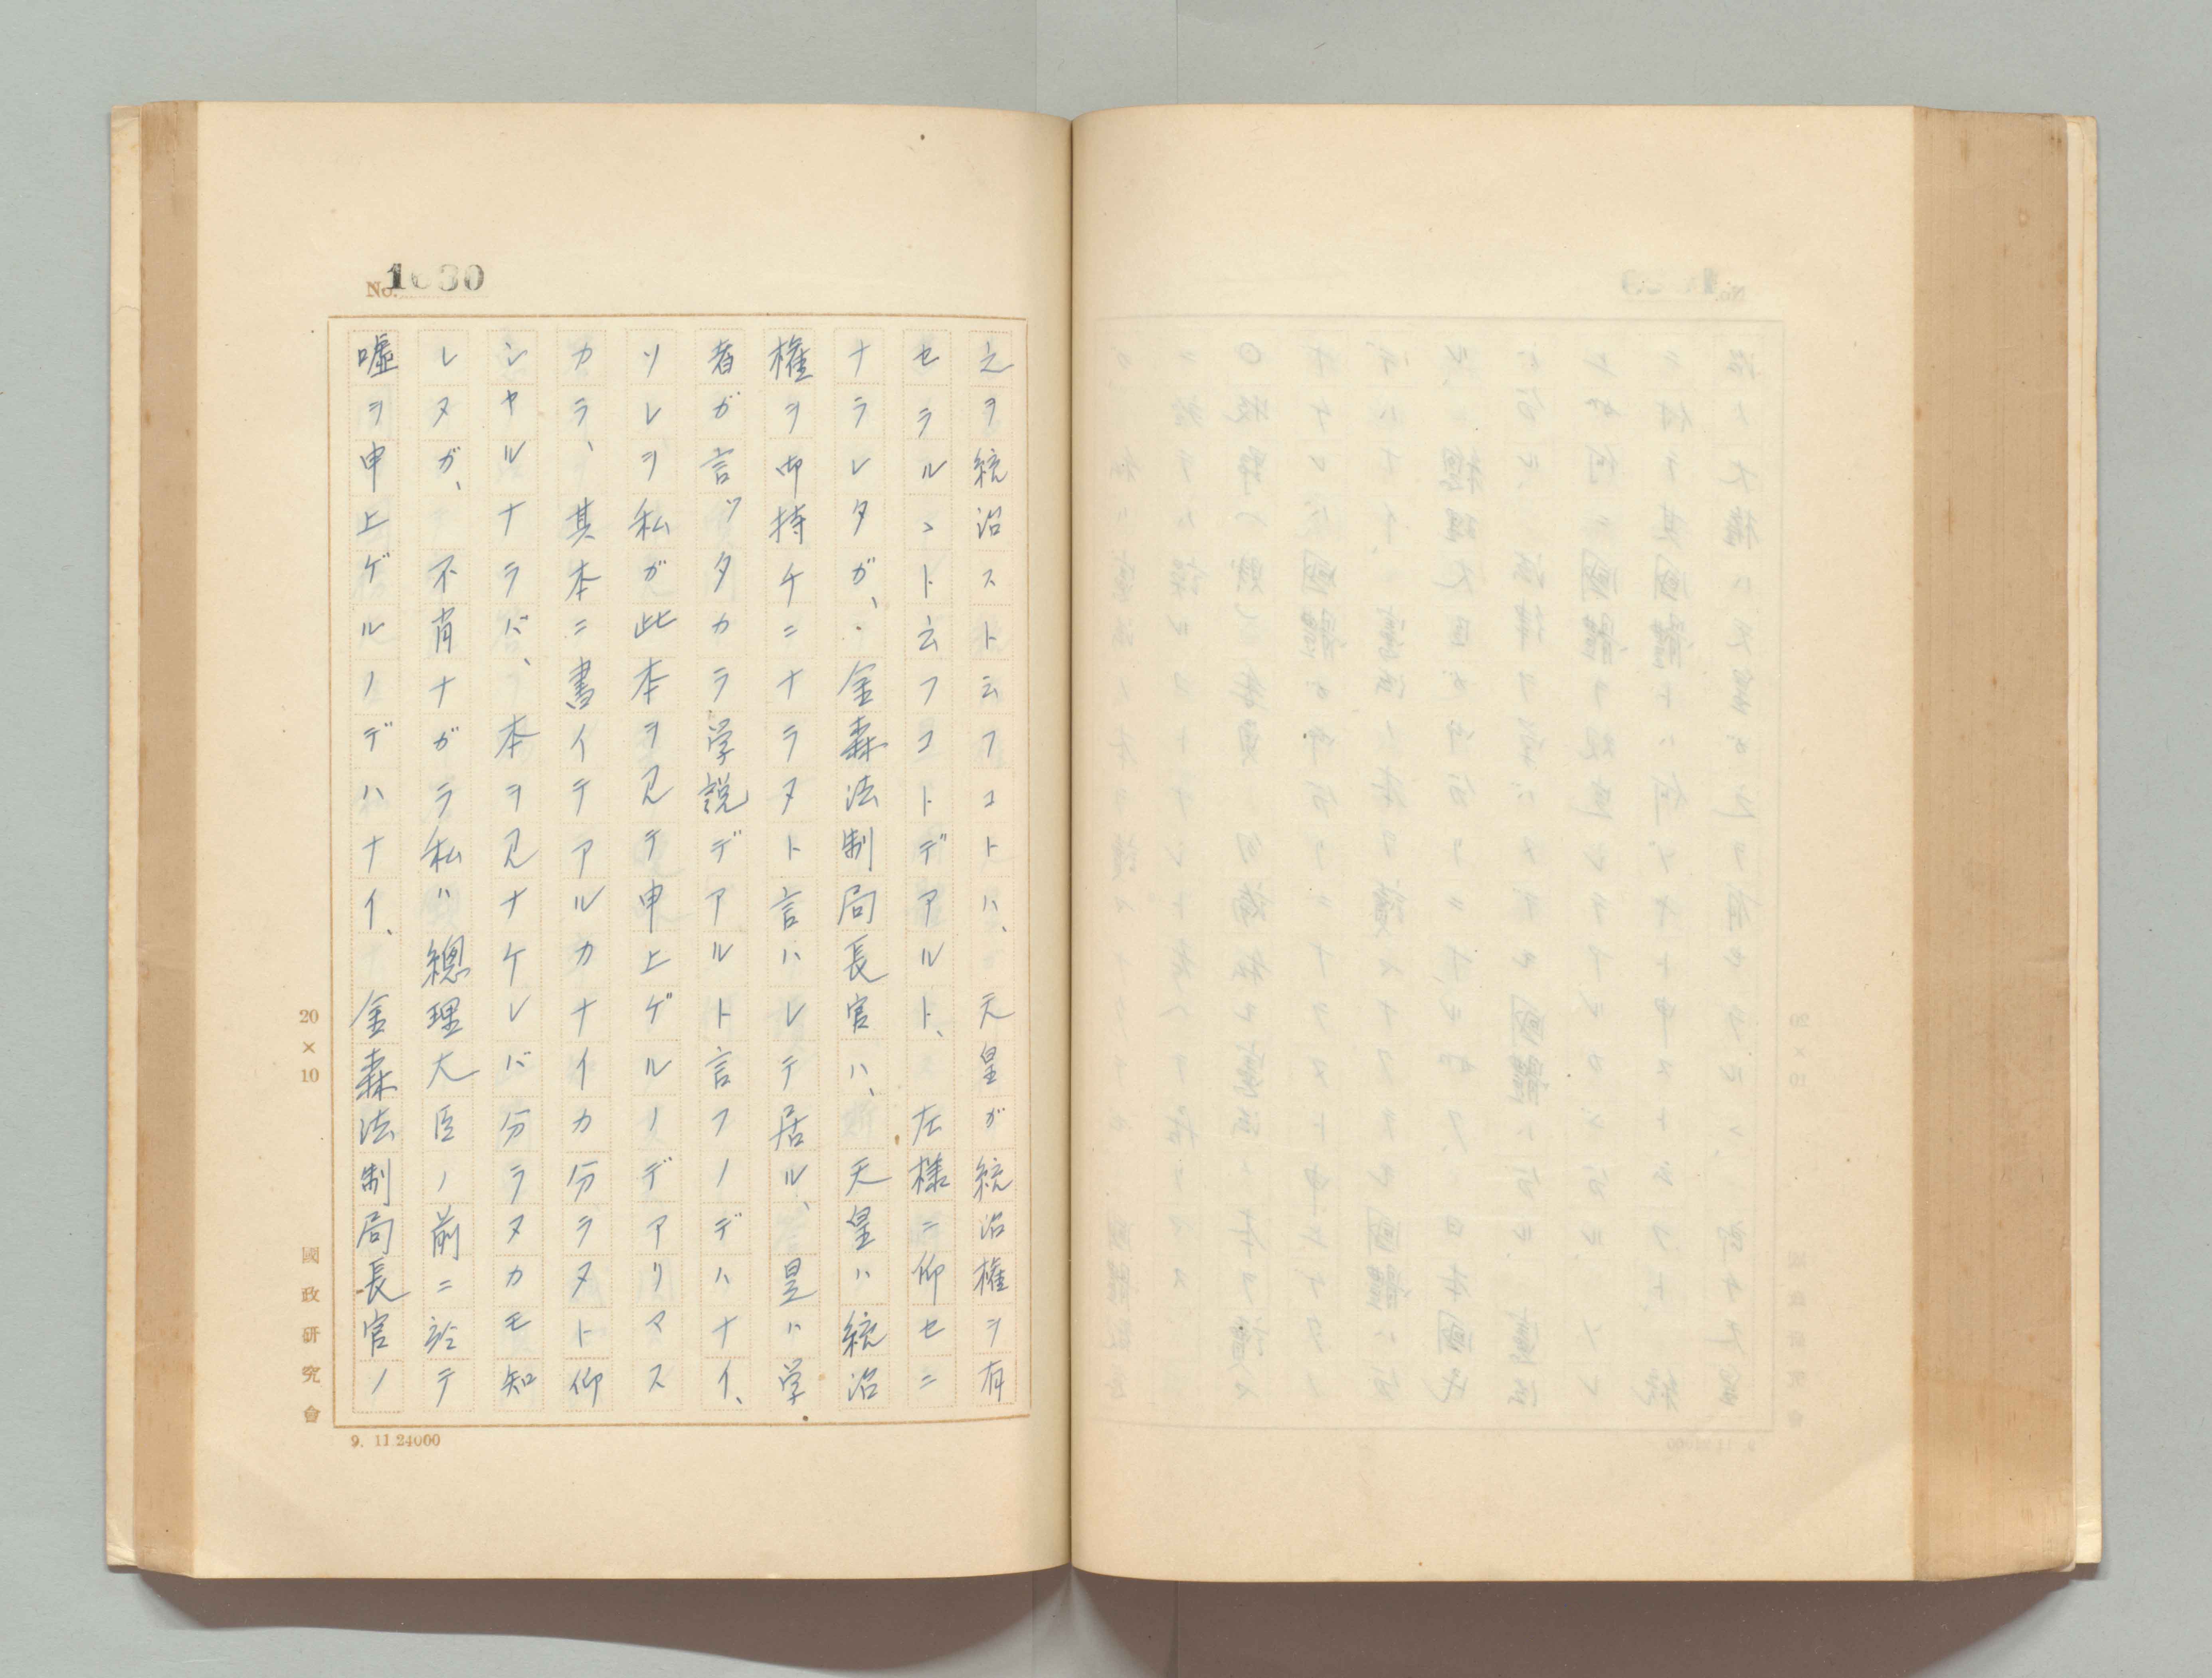 No. 1630
之ヲ統治スト云フコトハ、天皇ガ統治権ヲ有
セラルヽト云フコトデアルト、左様ニ仰セニ
ナラレタガ、金森法制局長官ハ、天皇ハ統治
権ヲ御持チニナラヌト言ハレテ居ル、是ハ学
者ガ言ツタカラ学説デアルト言フノデハナイ、
ソレヲ私ガ此本ヲ見テ申上ゲルノデアリマス
カラ、其本ニ書イテアルカナイカ分ラヌト仰
シヤルナラバ、本ヲ見ナケレバ分ラヌカモ知
レヌガ、不肖ナガラ私ハ總理大臣ノ前ニ於テ
嘘ヲ申上ゲルノデハナイ、金森法制局長官ノ
20×10
國政研究會
9. 11.24000